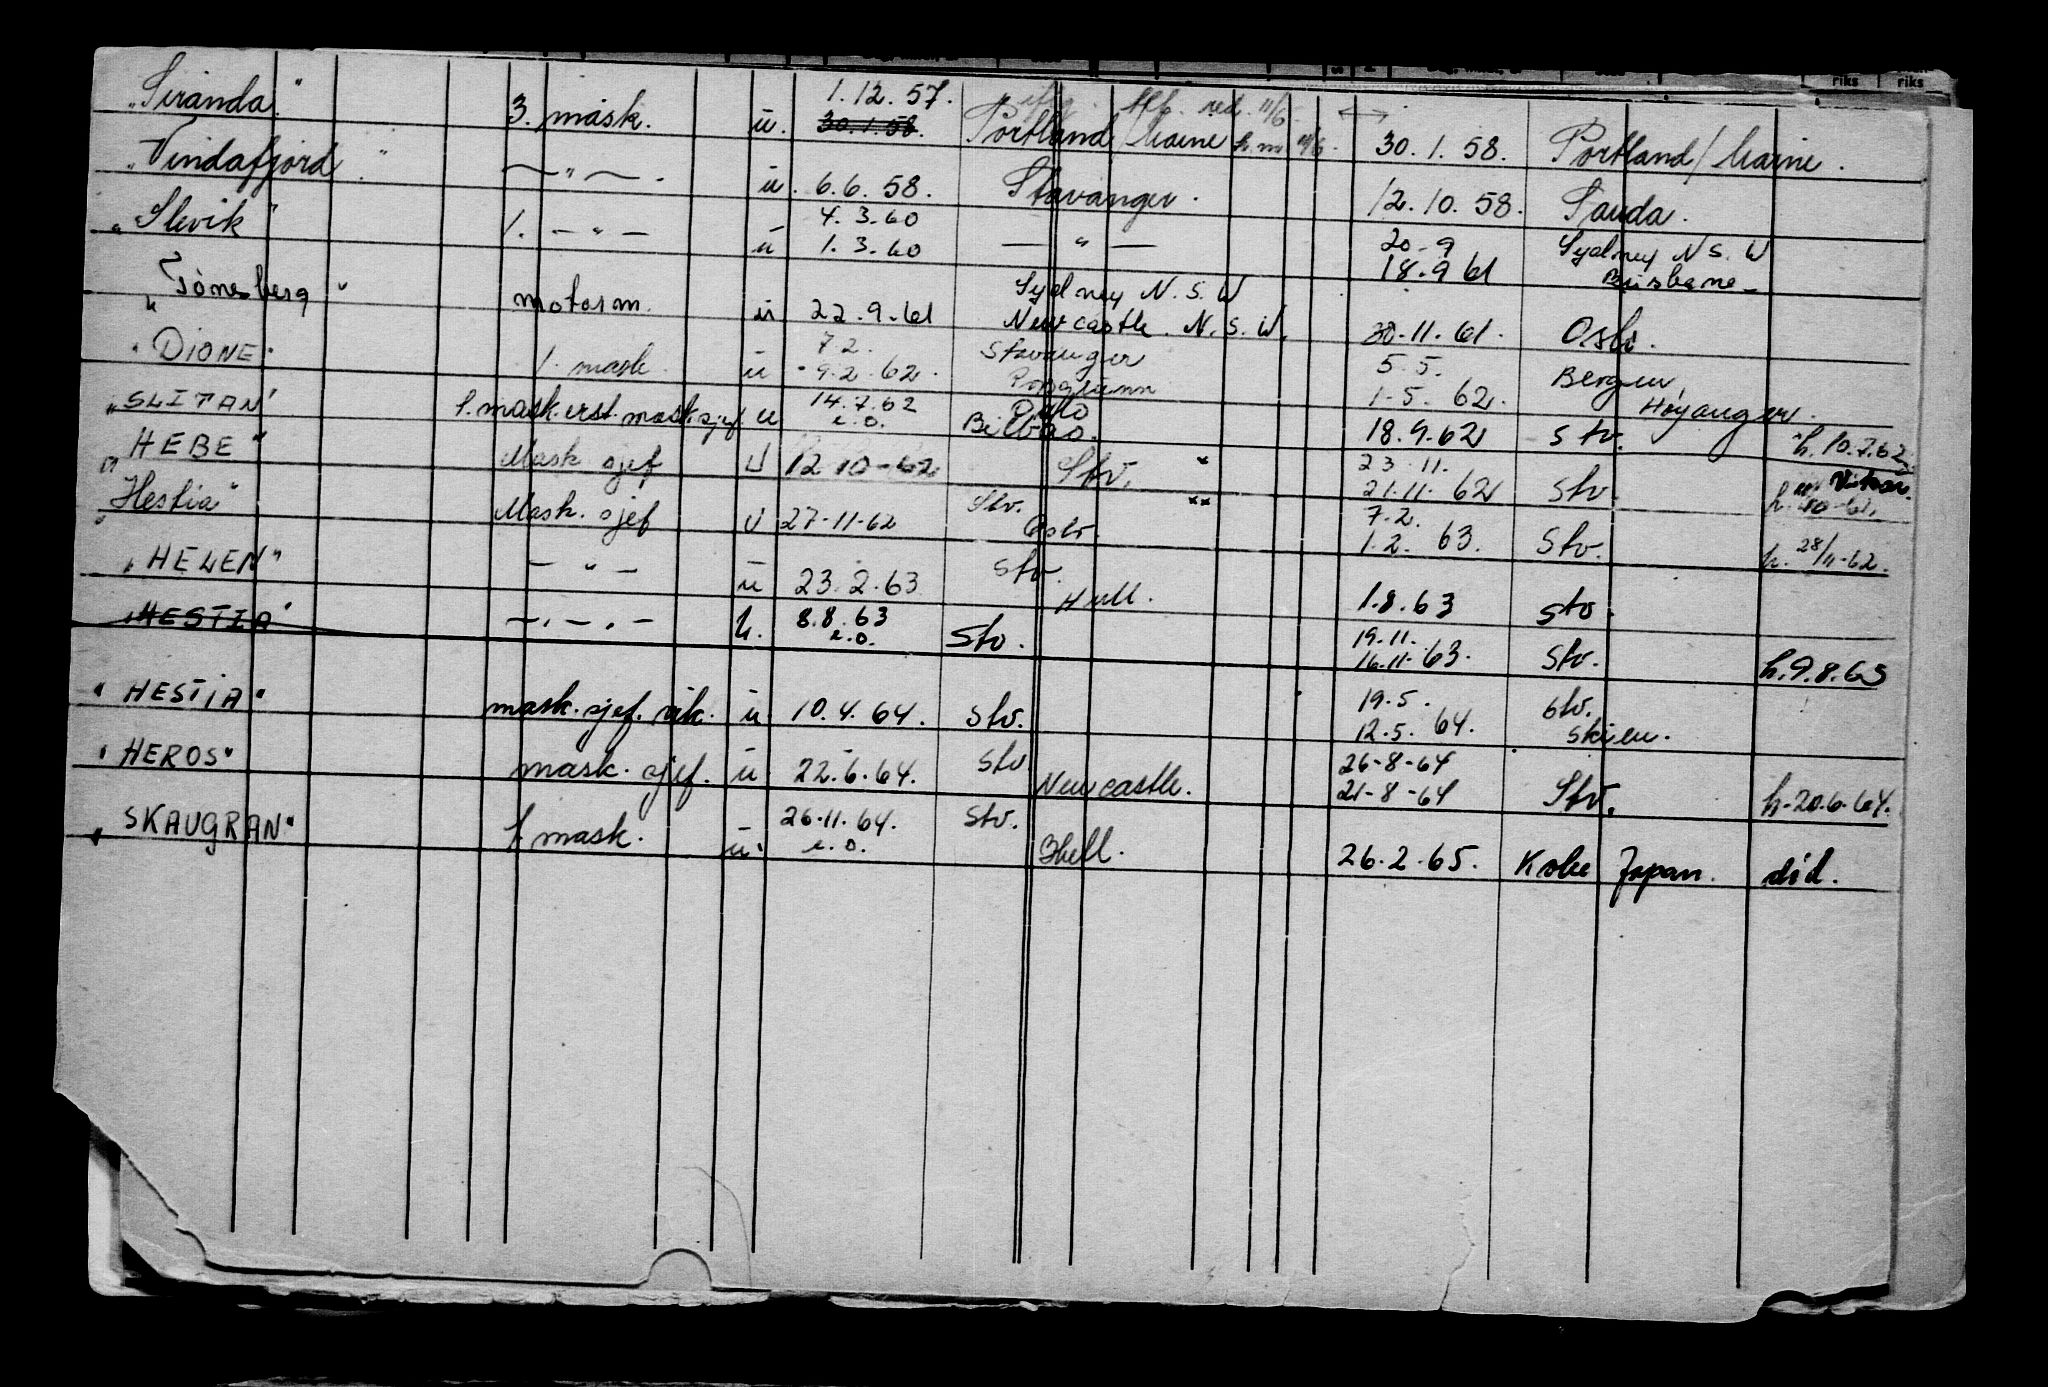 riks riks
"Siranda" 3. mask. u. 1.12.57. 30.1.58. Portland/Maine 30.1.58. Portland/Maine.
"Vindafjord" —"—. u. 6.6.58. Stavanger. 12.10.58. Sauda.
"Slevik" 1. —"— u 4.3.60 1.3.60 —"— 20-9 18.9 61 Sydney N S. W Brisbane-
"Tønsberg" motorm. u 22.9.61 Sydney N.S.W Newcastle. N.S.W. 30.11.61. Oslo.
"DIONE" 1. mask. u 7 2. 9.2.62. Stavanger Porsgrunn 5.5. 1.5.62. Bergen Høyanger.
"SLITAN" 1. mask. erst. mask. sjef u 14.7.62 e.o. Oslo Bilbao. 18.9.62 stv. h. 10.7.62
"HEBE" Mask. sjef U 12 10-62 Stv. * 23.11. 21.11.62 Stv.
"Hestia" Mask. sjef U 27-11-62 Stv. Oslo. ** 7.2. 1.2. 63. Stv. h. 28/11-62.
"HELEN" —"— u 23.2.63 stv. Hull. 1.8.63 stv.
"HESTIA" —.—.— h. 8.8.63 e.o. Stv. 19.11. 16.11.63. Stv. h.9.8.63
"HESTIA" mask. sjef. vik. u 10.4.64. stv. 19.5. 12.5.64. stv. Skien.
"HEROS" mask. sjef. u 22.6.64. stv Newcastle. 26-8-64 21-8-64 Stv. h-20.6.64.
"SKAUGRAN" 1 mask. u. 26.11.64. e.o. stv. 26.2.65. Kobe Japan. did.